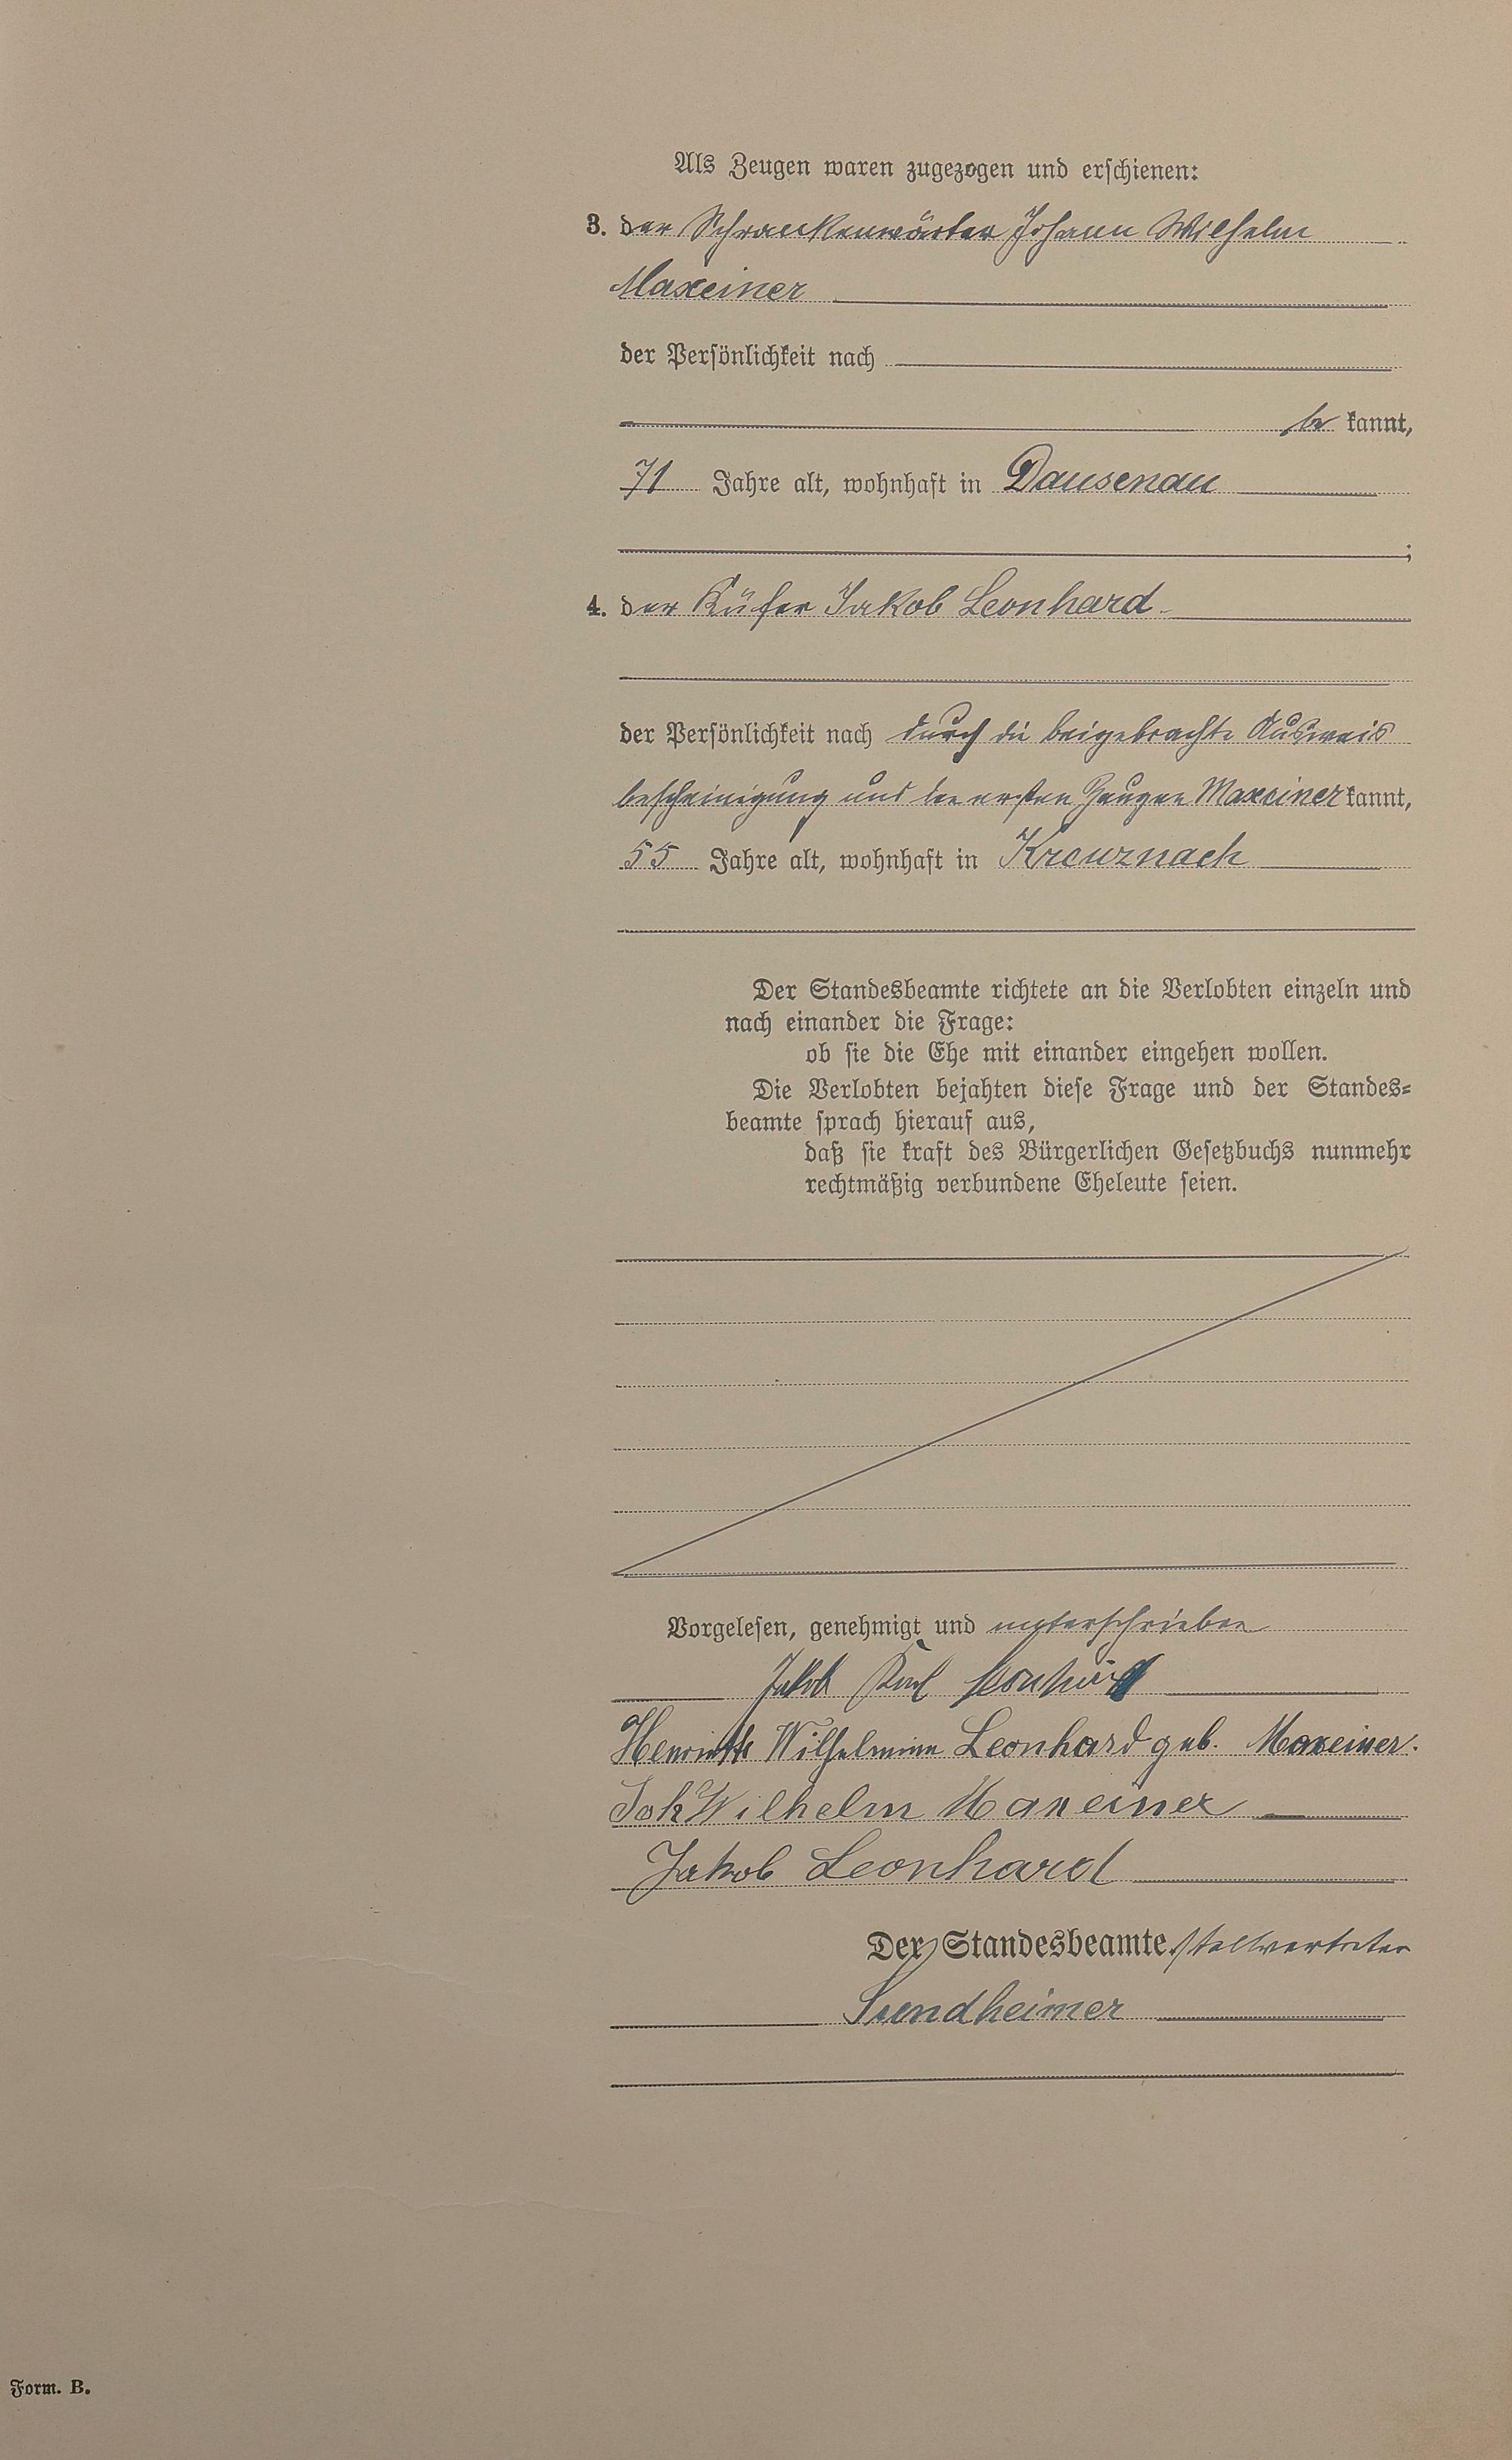 Als Zeugen waren zugezogen und erschienen:
3. der Schrankenwärter Johann Wilhelm
Maxeiner
der Persönlichkeit nach
be kannt,
71 Jahre alt, wohnhaft in Dausenau
;
4. der Küfer Jakob Leonhard
der Persönlichkeit nach durch die beigebrachte Ausweis
bescheinigung und den ersten Zeugen Maxeiner kannt,
55 Jahre alt, wohnhaft in Kreuznach
Der Standesbeamte richtete an die Verlobten einzeln und
nach einander die Frage:
ob sie die Ehe mit einander eingehen wollen.
Die Verlobten bejahten diese Frage und der Standes-
beamte sprach hierauf aus,
daß sie kraft des Bürgerlichen Gesetzbuchs nunmehr
rechtmäßig verbundene Eheleute seien.
Vorgelesen, genehmigt und unterschrieben
Jakob Karl Leonhard
Henriette Wilhelmine Leonhard geb. Maxeiner.
Joh Wilhelm Maxeiner
Jakob Leonhard
Der Standesbeamte stellvertreter
Sundheimer
Form. B.